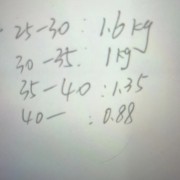 25-30 : 1.6kg
30-35: 1kg
35-40 : 1.35
40- : 0.88